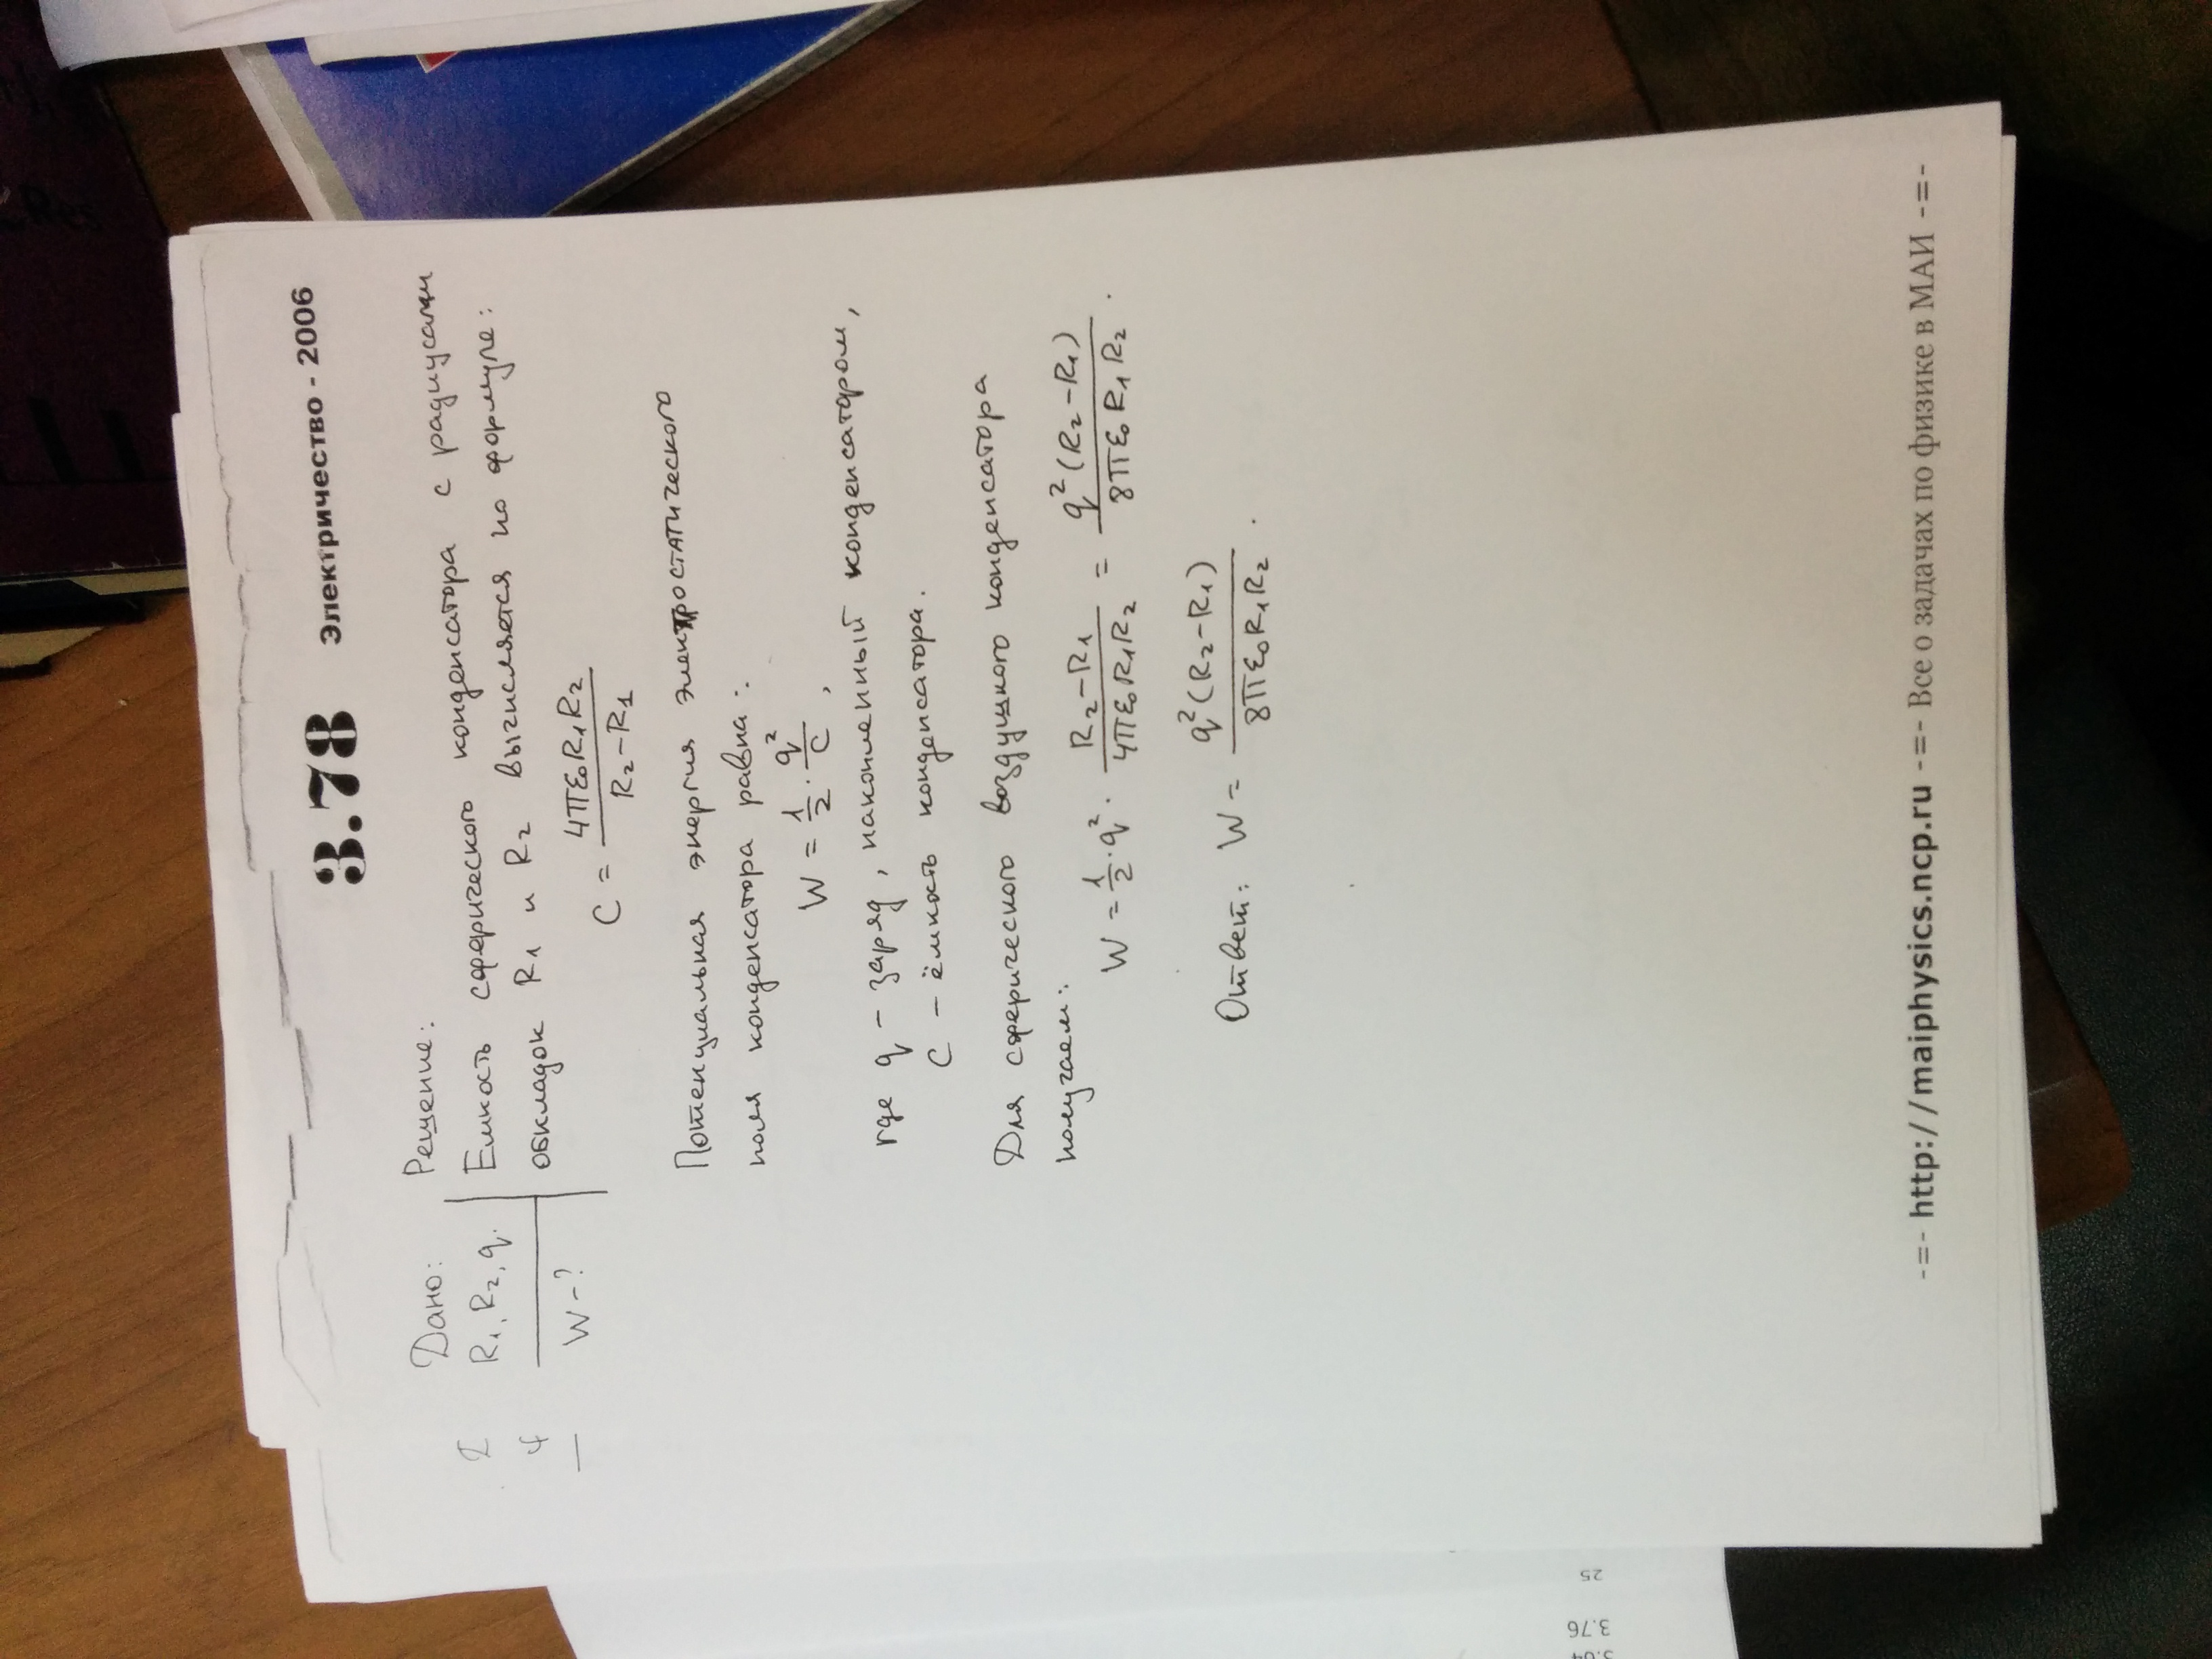 3.78 Электричество - 2006
Дано:
R₁, R₂, q.
W - ?
Решение:
Емкость сферического конденсатора с радиусами
обкладок R₁ и R₂ вычисляется по формуле:
C = 4πε₀R₁R₂ / R₂-R₁
Потенциальная энергия электростатического
поля конденсатора равна:
W = 1/2 · q²/C ,
где q - заряд, накопленный конденсатором,
C - ёмкость конденсатора.
Для сферического воздушного конденсатора
получаем:
W = 1/2 · q² · R₂-R₁ / 4πε₀R₁R₂ = q²(R₂-R₁) / 8πε₀R₁R₂ .
Ответ: W = q²(R₂-R₁) / 8πε₀R₁R₂ .
-=- http://maiphysics.ncp.ru -=- Все о задачах по физике в МАИ -=-
25
3.76
Res